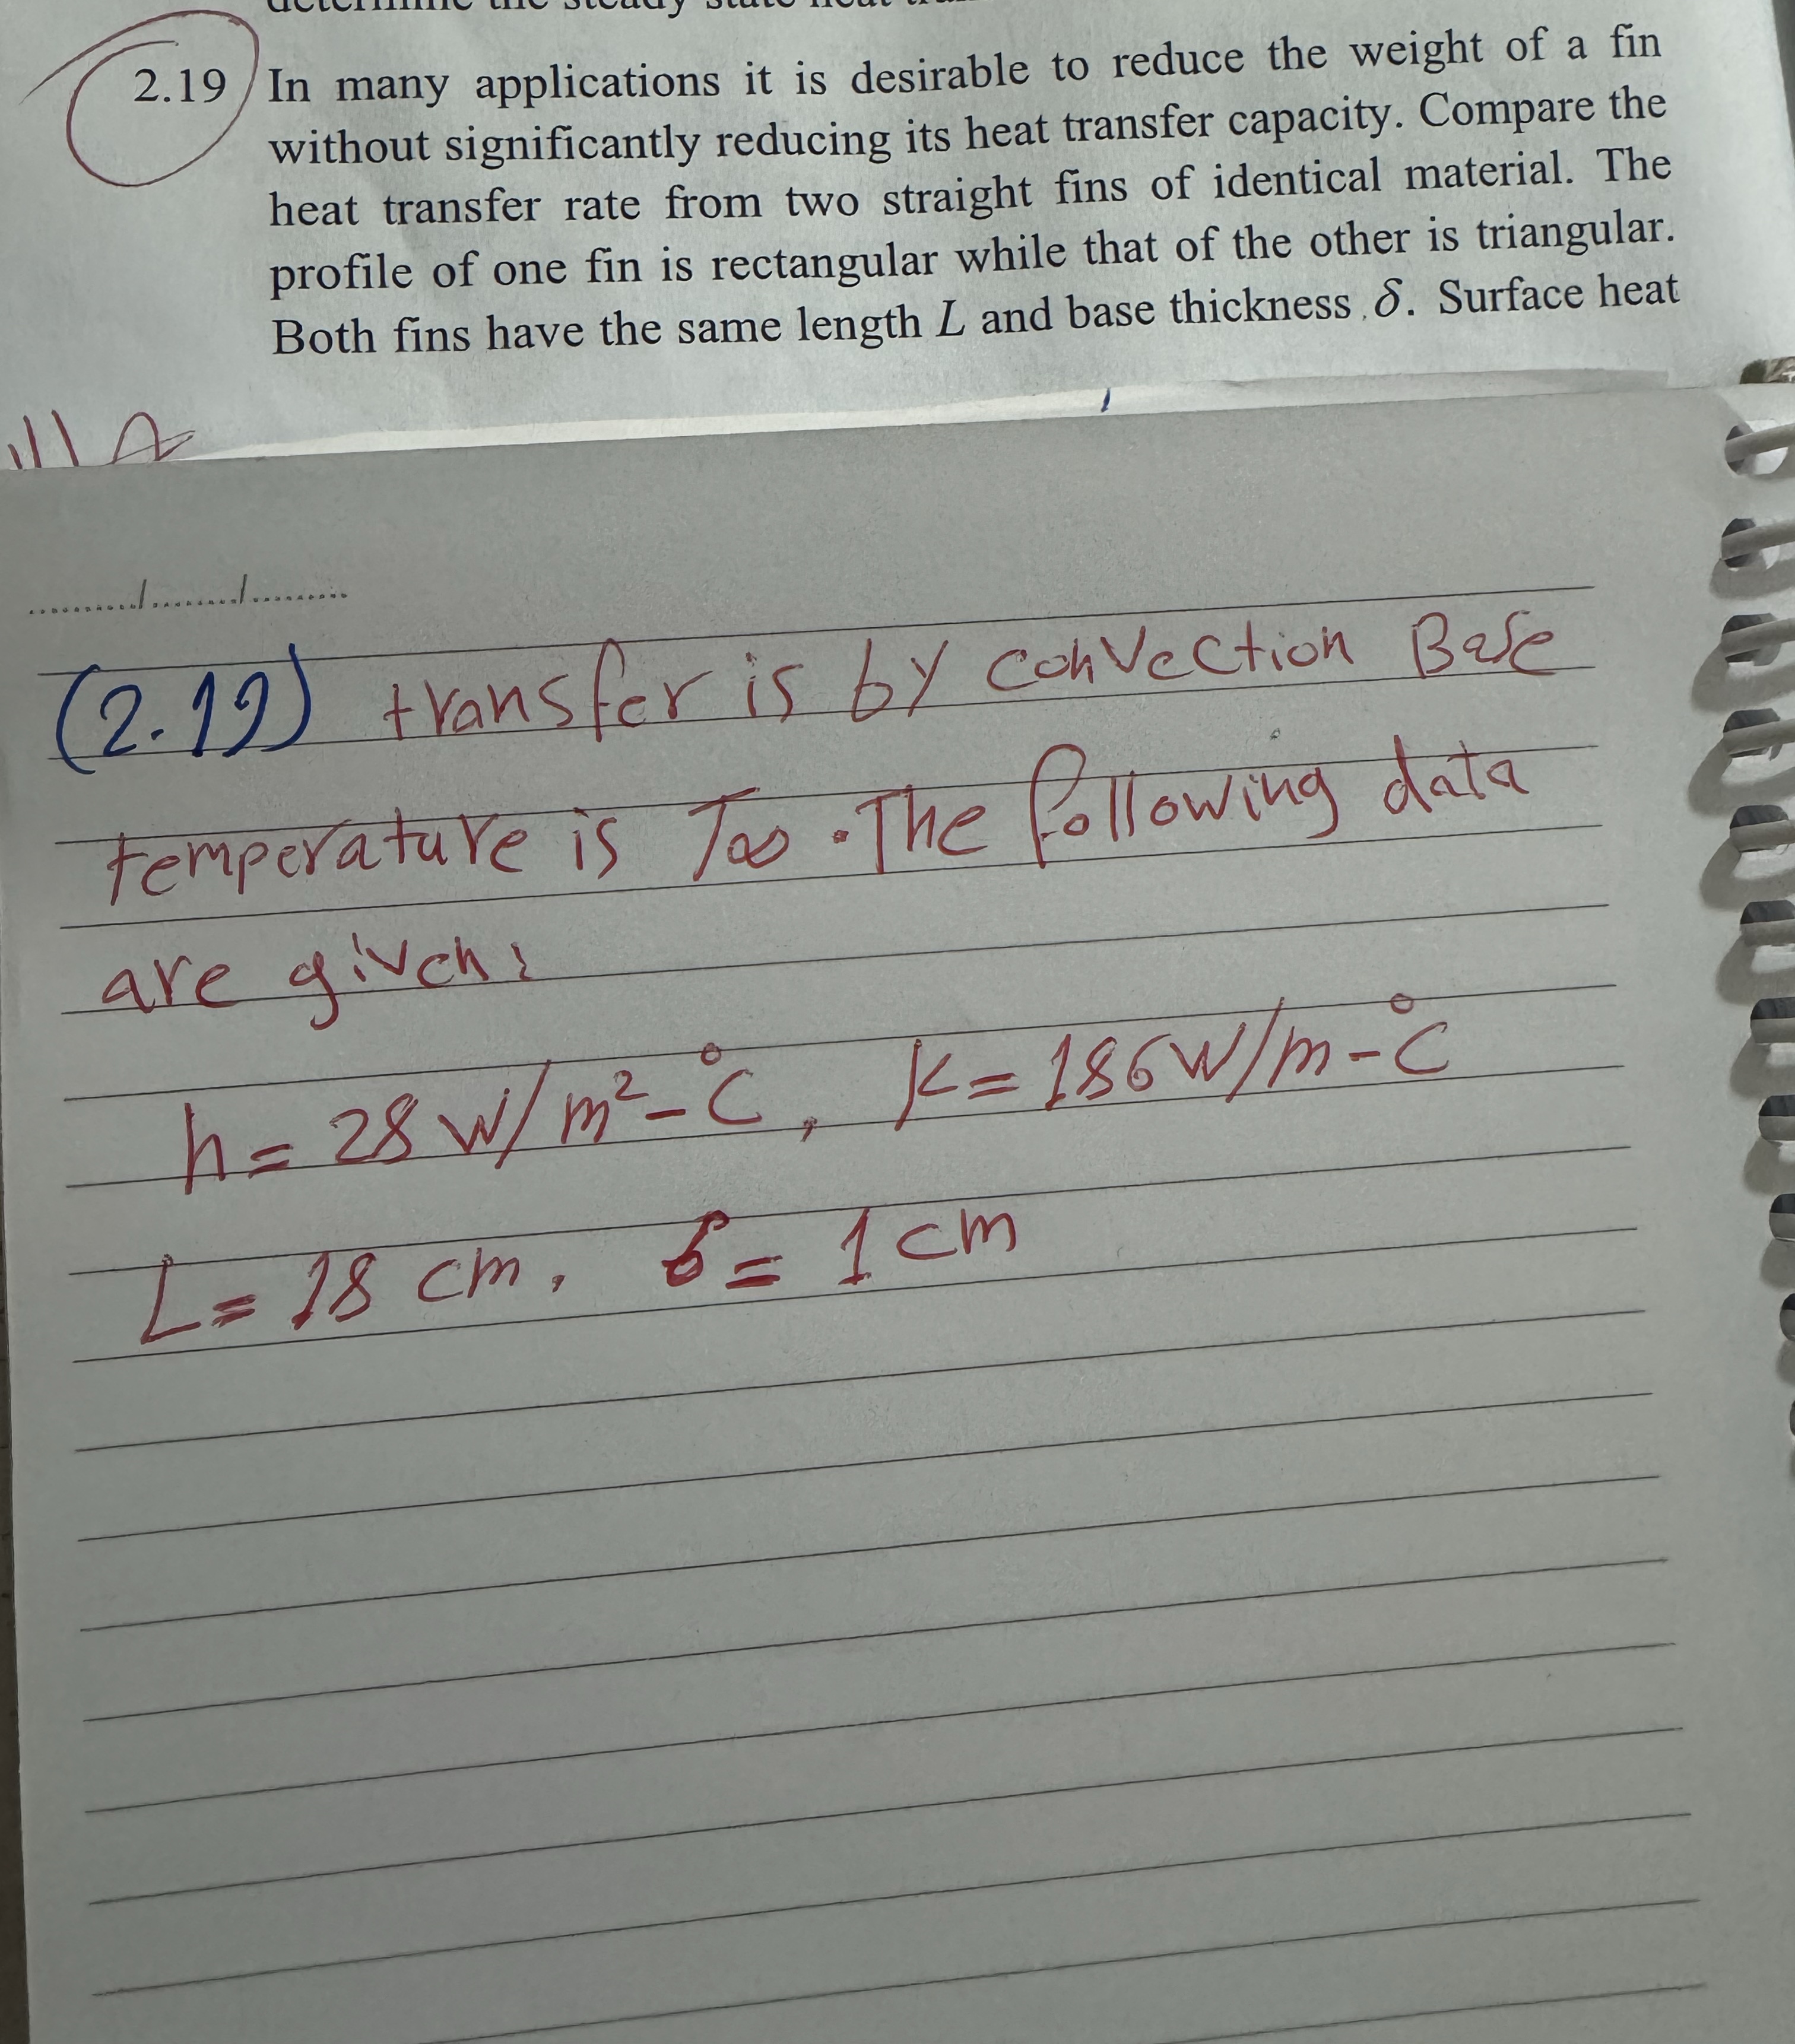 determine the steady state heat
2.19 In many applications it is desirable to reduce the weight of a fin
without significantly reducing its heat transfer capacity. Compare the
heat transfer rate from two straight fins of identical material. The
profile of one fin is rectangular while that of the other is triangular.
Both fins have the same length L and base thickness δ. Surface heat
(2.19) transfer is by convection Base
temperature is T∞. The following data
are given:
h = 28 W/m²-°C, K = 186 W/m-°C
L = 18 cm, δ = 1 cm